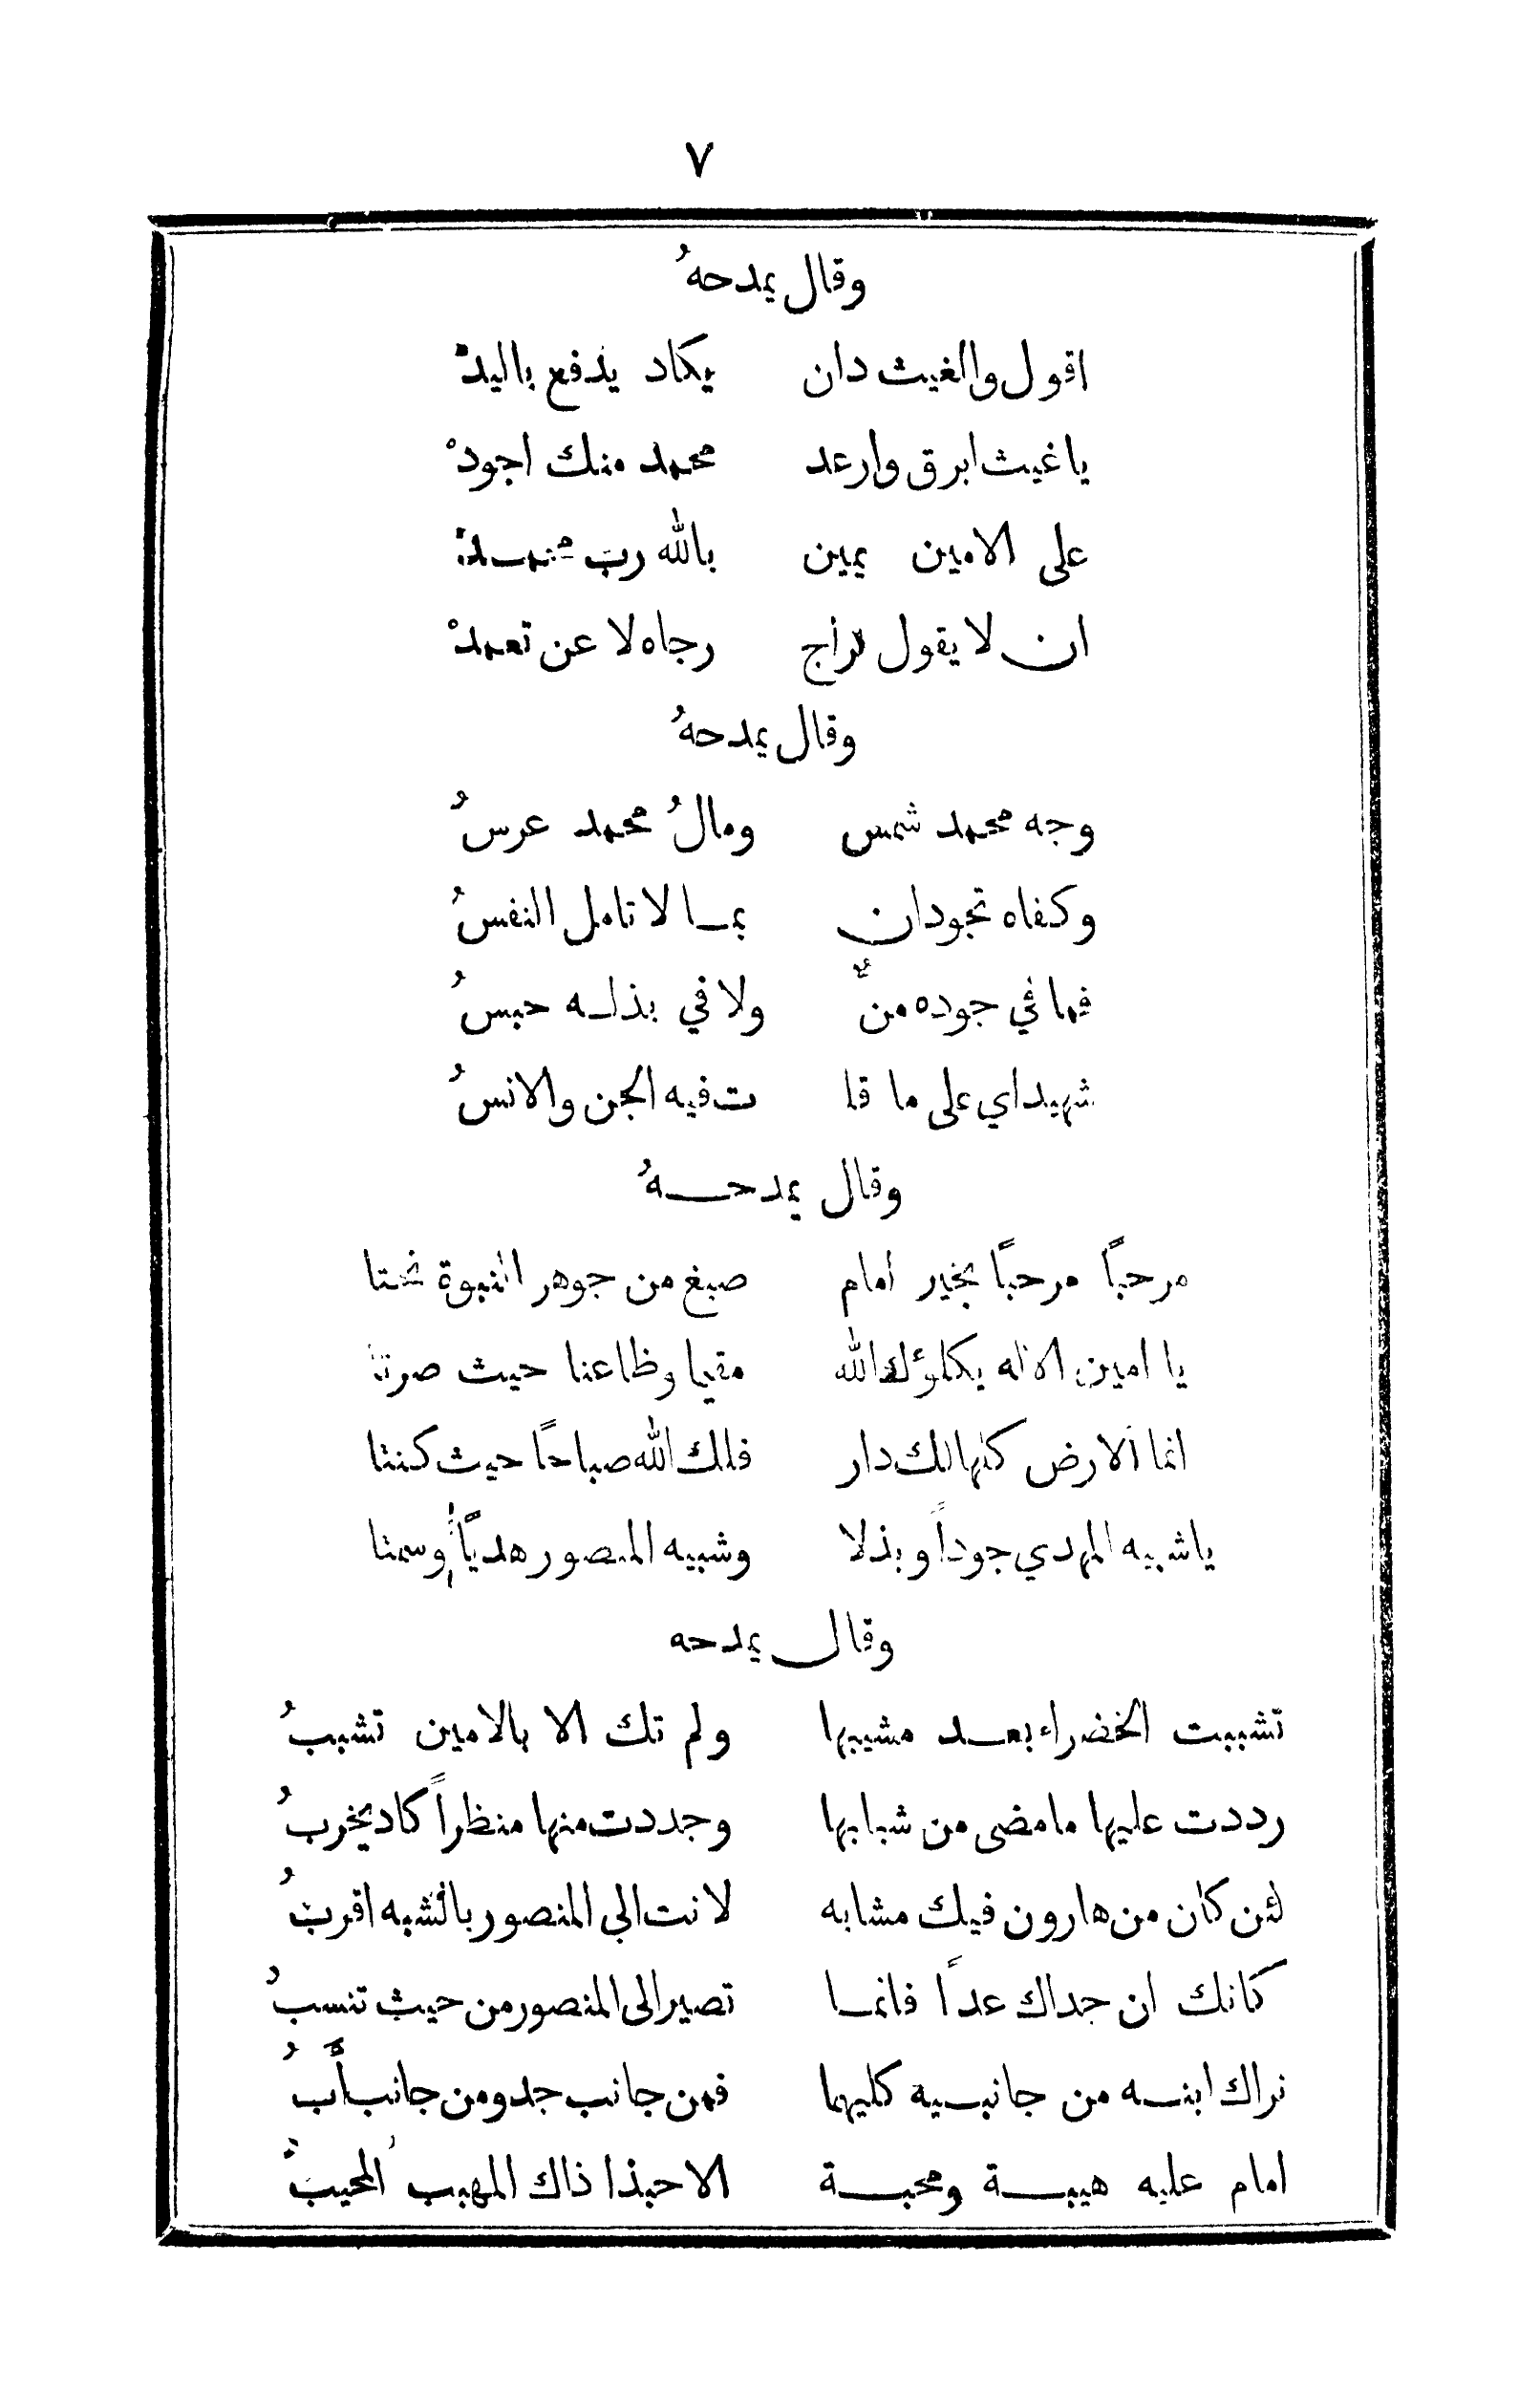 ٧
وقال يمدحهُ
اقول والغيث دان يكاد يدفع باليدْ
يا غيث ابرق وارعد محمد منك اجودْ
على الامين يمين بالله رب محمدْ
ان لا يقول لراج رجاه لا عن تعمدْ
وقال يمدحهُ
وجه محمد شمس ومالُ محمد عرسُ
وكفاه تجودان بما لا تامل النفسُ
فما في جوده منٌّ ولا في بذله حبسُ
شهيداي على ما قا ت فيه الجن والانسُ
وقال يمدحهُ
مرحباً مرحباً بخير امام صبغ من جوهر النبوة نحتا
يا امين الاله يكلؤك الله مقيما وظاعنا حيث صرتا
انما الارض كلها لك دار فلك الله صباحاً حيث كنتا
يا شبيه المهدي جوداً وبذلا وشبيه المنصور هدياً وسمتا
وقال يمدحه
تشببت الخضراء بعد مشيبها ولم تك الا بالامين تشببُ
رددت عليها ما مضى من شبابها وجددت منها منظراً كاد يخربُ
لئن كان من هارون فيك مشابه لانت الى المنصور بالشبه اقربُ
كانك ان جداك عداً فانما تصير الى المنصور من حيث تنسبُ
نراك ابنه من جانبيه كليهما فمن جانب جد ومن جانب أبُ
امام عليه هيبة ومحبة الا حبذا ذاك المهيب المحببُ